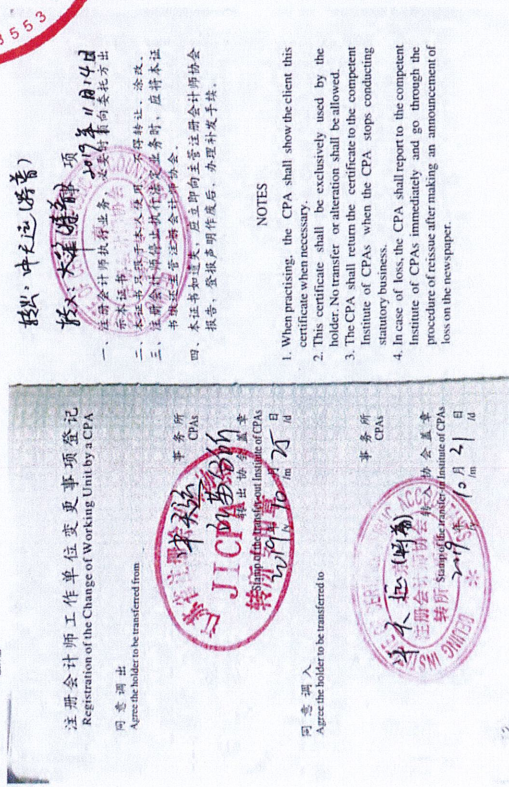 注册会计师工作单位变更事项登记
Registration of the Change of Working Unit by a CPA
同意调出
Agree the holder to be transferred from
事务所
CPAs
JICPA
转出协会盖章
Stamp of the transfer-out Institute of CPAs
2019年10月25日
/y /m /d
同意调入
Agree the holder to be transferred to
事务所
CPAs
注册会计师协会
转所
转入协会盖章
Stamp of the transfer-in Institute of CPAs
2019年10月31日
/m /d
3553
转出：中天运(特普)
转入：大华(特普)
2019年11月14日
事项
一、注册会计师执行业务，必要时须向委托方出
示本证书。
二、本证书只限于本人使用，不得转让、涂改。
三、注册会计师停止执行法定业务时，应将本证
书缴还主管注册会计师协会。
四、本证书如遗失，应立即向主管注册会计师协会
报告，登报声明作废后，办理补发手续。
NOTES
1. When practising, the CPA shall show the client this
certificate when necessary.
2. This certificate shall be exclusively used by the
holder. No transfer or alteration shall be allowed.
3. The CPA shall return the certificate to the competent
Institute of CPAs when the CPA stops conducting
statutory business.
4. In case of loss, the CPA shall report to the competent
Institute of CPAs immediately and go through the
procedure of reissue after making an announcement of
loss on the newspaper.